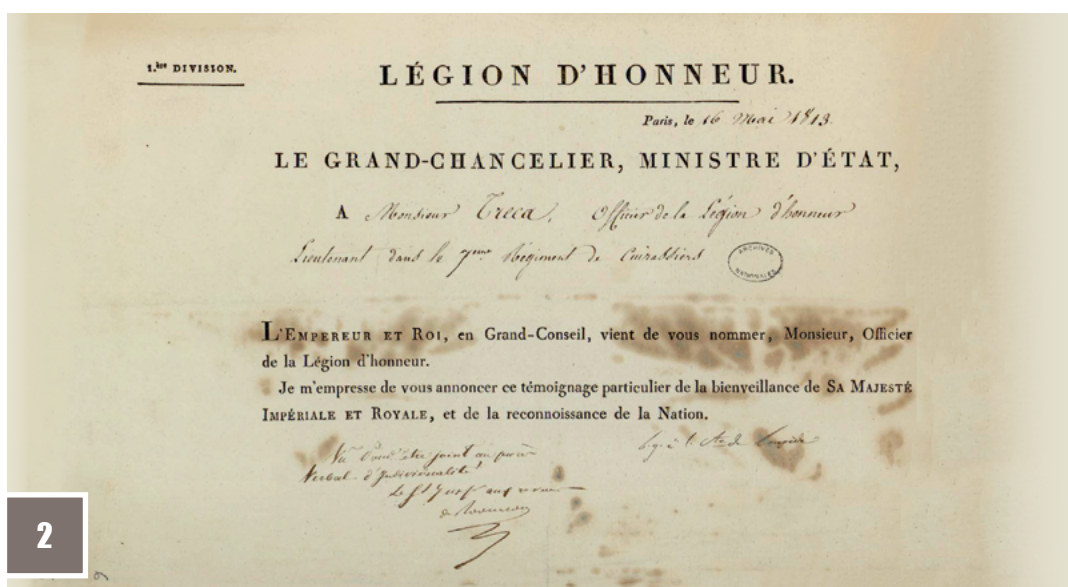 1.ère DIVISION.
LÉGION D'HONNEUR.
Paris, le 16 Mai 1813.
LE GRAND-CHANCELIER, MINISTRE D'ÉTAT,
A Monsieur Treca, Officier de la Légion d'honneur
Lieutenant dans le 7eme Régiment de Cuirassiers
ARCHIVES
NATIONALES
L'EMPEREUR ET ROI, en Grand-Conseil, vient de vous nommer, Monsieur, Officier
de la Légion d'honneur.
Je m'empresse de vous annoncer ce témoignage particulier de la bienveillance de SA MAJESTÉ
IMPÉRIALE ET ROYALE, et de la reconnoissance de la Nation.
Vu pour être joint au procès
Verbal d'Individualité
Le
2